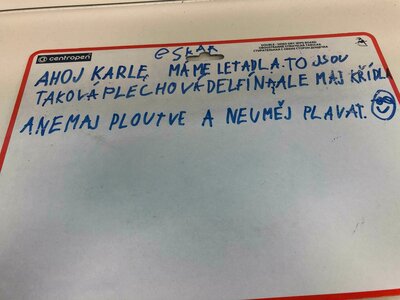 centropen
@SKAR
AHOJ KARLE MÁME LETADLA. TO JSOU
TAKOVÁ PLECHOVÁ DELFÍŇA ALE MAJ KŘÍDLA
A NEMAJ PLOUTVE A NEUMĚJ PLAVAT.